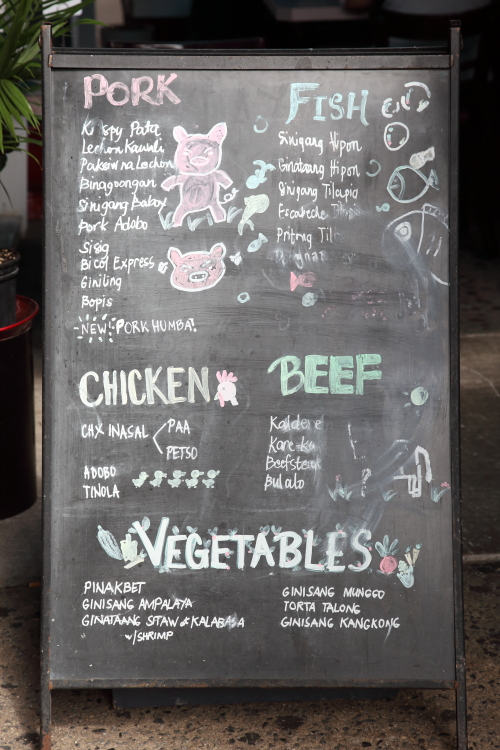 PORK
Krispy Pata
Lechon Kawali
Paksiw na Lechon
Binagoongan
Sinigang Baboy
Pork Adobo
Sisig
Bicol Express
Giniling
Bopis
NEW! PORK HUMBA!
FISH
Sinigang Hipon
Ginataang Hipon
Sinigang Tilapia
Escabeche
Pritong
CHICKEN
CHX INASAL
PAA
PETSO
ADOBO
TINOLA
BEEF
Kaldere
Kare-ka
Beefsteak
Bulalo
VEGETABLES
PINAKBET
GINISANG AMPALAYA
GINATAANG SITAW & KALABASA
w/SHRIMP
GINISANG MUNGGO
TORTA TALONG
GINISANG KANGKONG